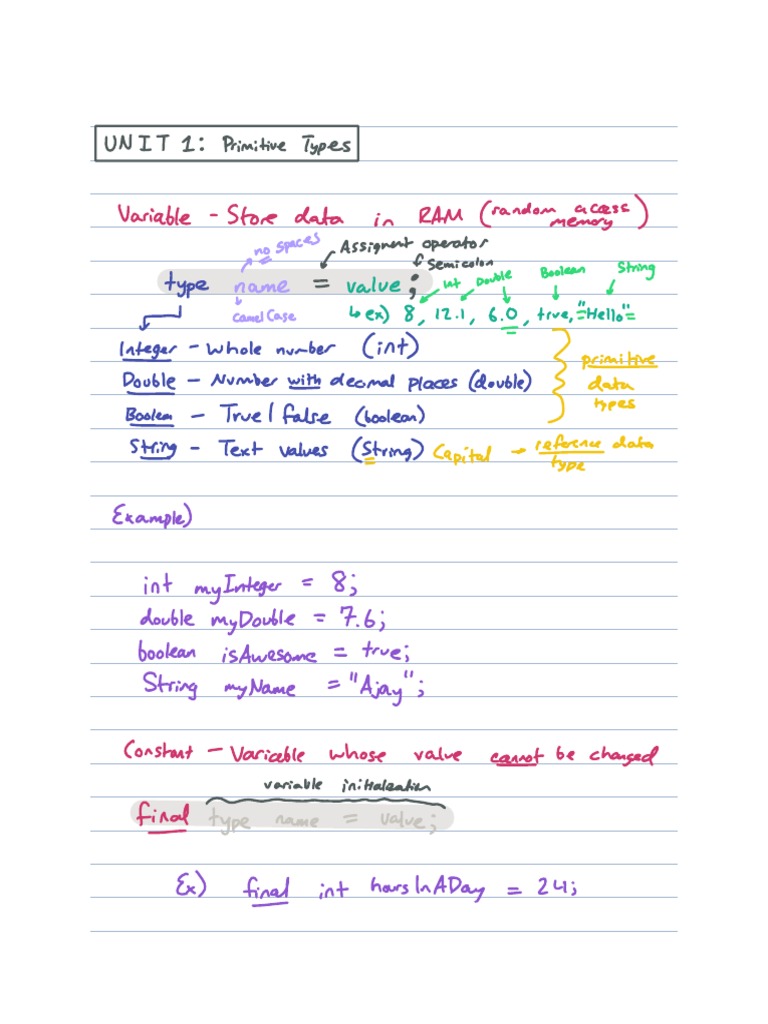 UNIT 1: Primitive Types
Variable - Store data in RAM (random access memory)
no spaces
Assignent operator
Semicolon
type name = value;
int Double Boolean String
camel Case
↳ ex) 8, 12.1, 6.0, true, "Hello"
Integer - Whole number (int)
Double - Number with decimal places (double)
Boolean - True/false (boolean)
primitive data types
String - Text values (String) Capital → reference data type
Example)
int myInteger = 8;
double myDouble = 7.6;
boolean isAwesome = true;
String myName = "Ajay";
Constant - Variable whose value cannot be changed
variable initialization
final type name = value;
Ex) final int hoursInADay = 24;